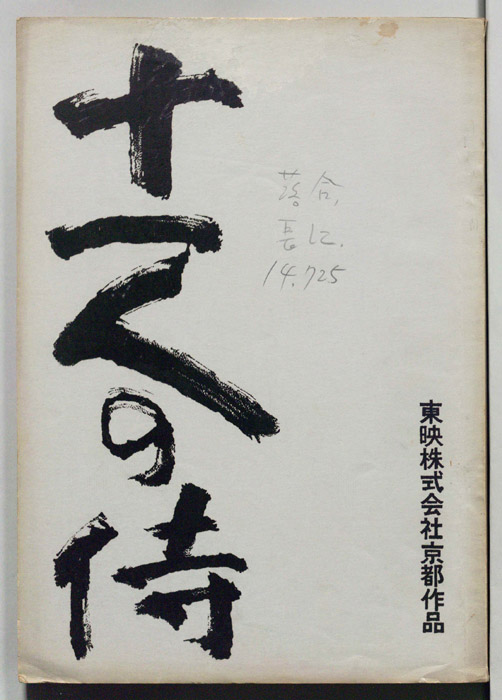 十一人の侍
落合,
長に.
14.725
東映株式会社京都作品